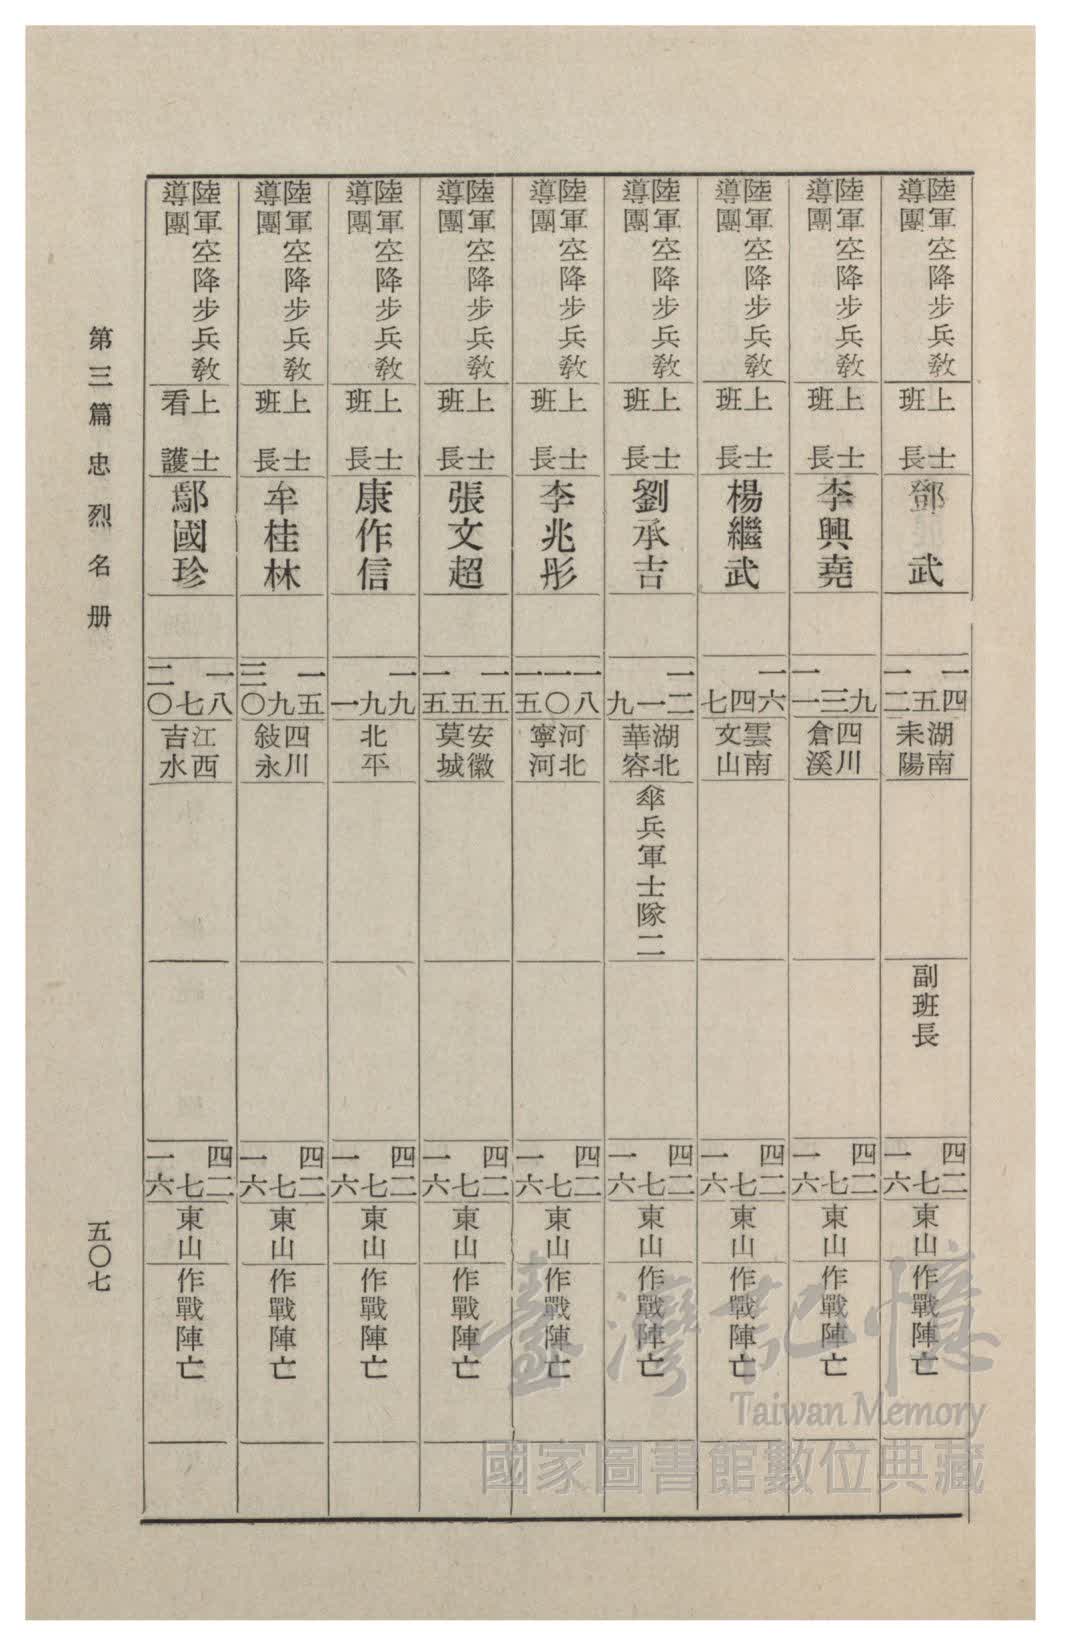 陸軍空降步兵教
導團
上士
班長
鄧武
一四
五
一二
湖南
耒陽
副班長
四二
七
一六
東山
作戰陣亡
陸軍空降步兵教
導團
上士
班長
李興堯
九
三
一一
四川
倉溪
四二
七
一六
東山
作戰陣亡
陸軍空降步兵教
導團
上士
班長
楊繼武
一六
四
七
雲南
文山
四二
七
一六
東山
作戰陣亡
陸軍空降步兵教
導團
上士
班長
劉承吉
一二
一
九
湖北
華容
傘兵軍士隊二
四二
七
一六
東山
作戰陣亡
陸軍空降步兵教
導團
上士
班長
李兆彤
一八
一〇
一五
河北
寧河
四二
七
一六
東山
作戰陣亡
陸軍空降步兵教
導團
上士
班長
張文超
一五
五
一五
安徽
莫城
四二
七
一六
東山
作戰陣亡
陸軍空降步兵教
導團
上士
班長
康作信
一九
九
一
北平
四二
七
一六
東山
作戰陣亡
陸軍空降步兵教
導團
上士
班長
牟桂林
一五
九
三〇
四川
敍永
四二
七
一六
東山
作戰陣亡
陸軍空降步兵教
導團
上士
看護
鄢國珍
一八
七
二〇
江西
吉水
四二
七
一六
東山
作戰陣亡
第三篇忠烈名册
五〇七
臺灣記憶
Taiwan Memory
國家圖書館數位典藏